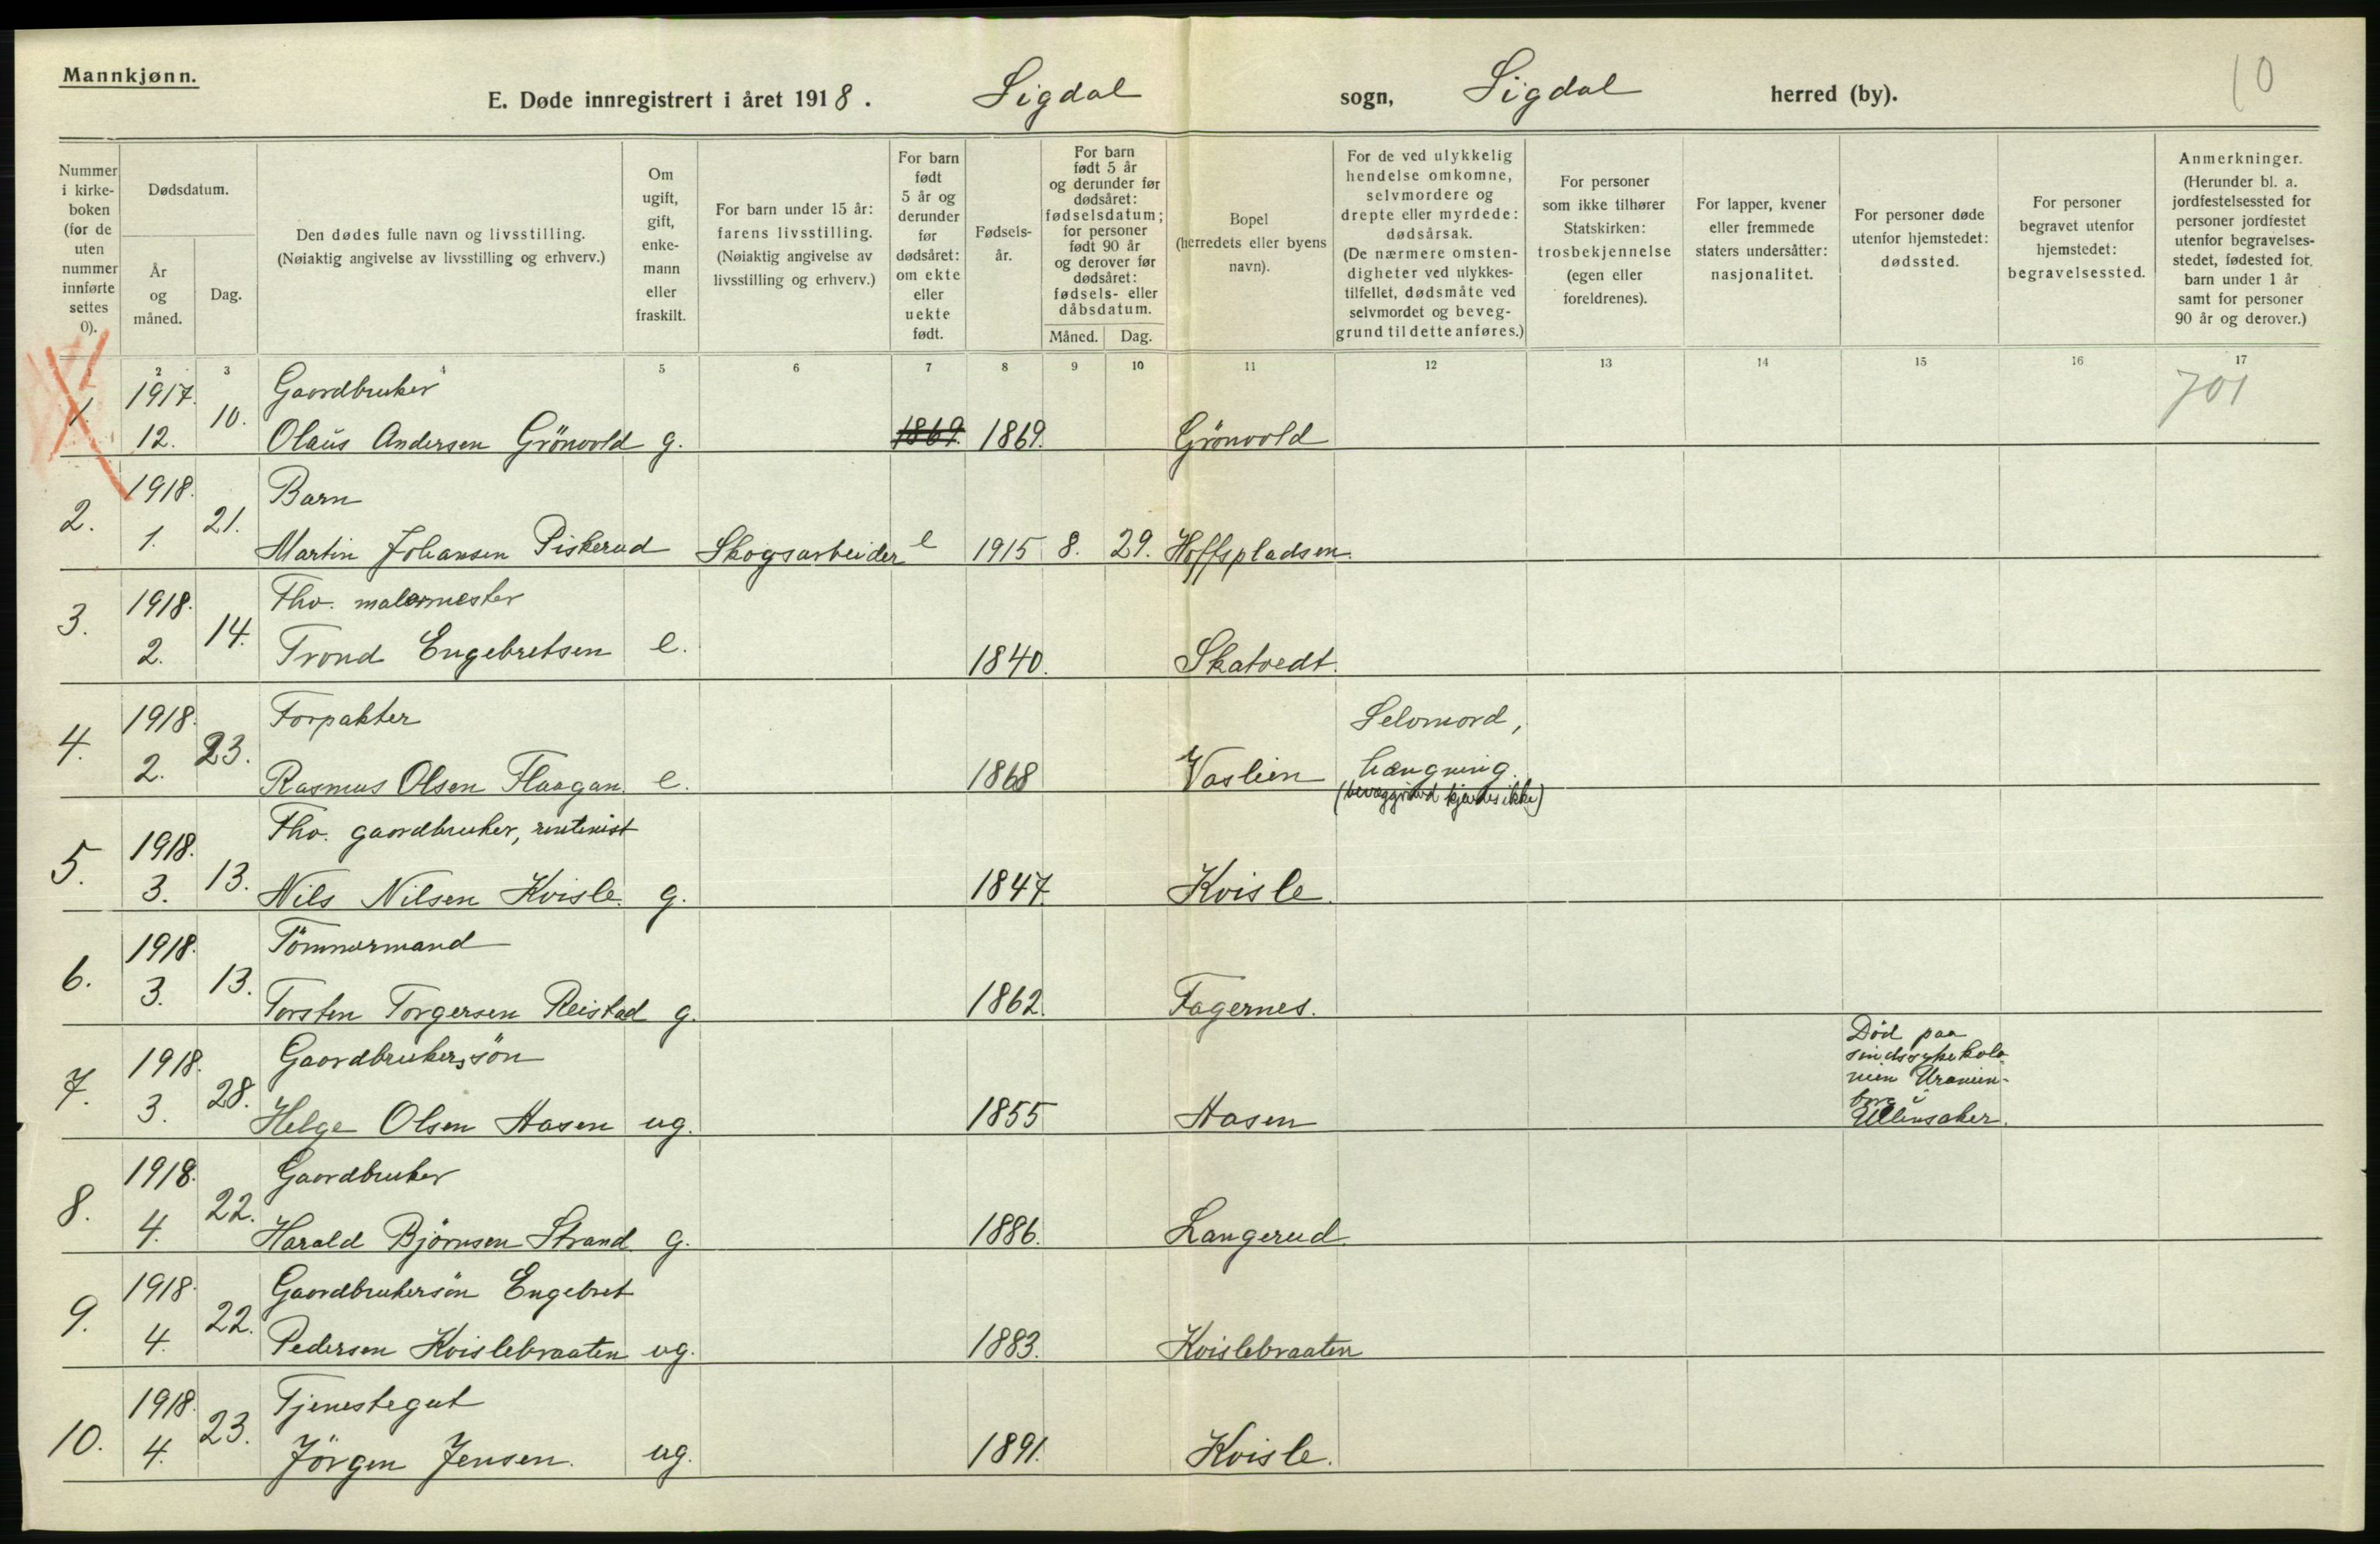 Mannkjønn.
E. Døde innregistrert i året 1918. Sigdal sogn, Sigdal herred (by).
10
Nummer i kirke-boken (for de uten nummer innførte settes 0).
Dødsdatum.
År og måned.
Dag.
Den dødes fulle navn og livsstilling.
(Nøiaktig angivelse av livsstilling og erhverv.)
Om ugift, gift, enke-mann eller fraskilt.
For barn under 15 år: farens livsstilling.
(Nøiaktig angivelse av livsstilling og erhverv.)
For barn født 5 år og derunder før dødsåret: om ekte eller uekte født.
Fødsels-år.
For barn født 5 år og derunder før dødsåret: fødselsdatum; for personer født 90 år og derover før dødsåret: fødsels- eller dåbsdatum.
Måned. Dag.
Bopel (herredets eller byens navn).
For de ved ulykkelig hendelse omkomne, selvmordere og drepte eller myrdede: dødsårsak.
(De nærmere omsten-digheter ved ulykkes-tilfellet, dødsmåte ved selvmordet og beveg-grund til dette anføres.)
For personer som ikke tilhører Statskirken: trosbekjennelse (egen eller foreldrenes).
For lapper, kvener eller fremmede staters undersåtter: nasjonalitet.
For personer døde utenfor hjemstedet: dødssted.
For personer begravet utenfor hjemstedet: begravelsessted.
Anmerkninger.
(Herunder bl. a. jordfestelsessted for personer jordfestet utenfor begravelses-stedet, fødested for barn under 1 år samt for personer 90 år og derover.)
1 2 3 4 5 6 7 8 9 10 11 12 13 14 15 16 17
1917. Gaardbruker 701
1. 12. 10. Olaus Andersen Grönvold g. 1869. 1869. Grönvold
1918. Barn
2. 1. 21. Martin Johansen Piskerud Skogsarbeider e 1915 8. 29. Hoffspladsen.
1918. Fhv. malermester
3. 2. 14. Trond Engebretsen e. 1840. Skatvedt.
1918. Forpakter Selvmord,
4. 2. 23. Rasmus Olsen Flaagan. e. 1868 Vaslien hængning.
(bevæggrund kjendes ikke)
1918. Fhv. gaardbruker, rentenist
5. 3. 13. Nils Nilsen Kvisle. g. 1847 Kvisle.
1918. Tömmermand
6. 3. 13. Torsten Torgersen Reistad g. 1862. Fagernes.
1918. Gaardbrukerssön Död paa
sindssykekolo-
nien Uranien-
borg i
7. 3. 28. Helge Olsen Aasen ug. 1855 Aasen Ullensaker.
1918. Gaardbruker
8. 4. 22. Harald Björnsen Strand. g. 1886. Langerud.
1918. Gaardbrukersön Engebret
9. 4. 22. Pedersen Kvislebraaten ug. 1883. Kvislebraaten
1918. Tjenestegut
10. 4. 23. Jörgen Jensen. ug. 1891. Kvisle.